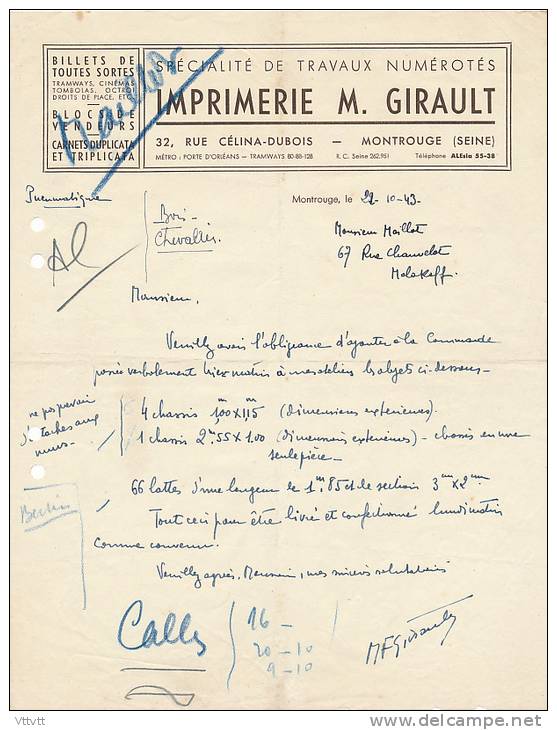 BILLETS DE
TOUTES SORTES
TRAMWAYS, CINÉMAS
TOMBOLAS, OCTROI
DROITS DE PLACE, ETC.
BLOCS DE
VENDEURS
CARNETS DUPLICATA
ET TRIPLICATA
SPÉCIALITÉ DE TRAVAUX NUMÉROTÉS
IMPRIMERIE M. GIRAULT
32, RUE CÉLINA-DUBOIS — MONTROUGE (SEINE)
MÉTRO : PORTE D'ORLÉANS — TRAMWAYS 80-88-128 R. C. Seine 262.951 Téléphone ALEsia 55-38
Pneumatique
Montrouge, le 22-10-43.
Bois-
Chevalles.
Monsieur Maillot
67 Rue Chauvelot
Malakoff.
Monsieur,
Veuillez avoir l'obligeance d'ajouter à la Commande
passée verbalement hier matin à mes ateliers les objets ci-dessous-
4 chassis 1,00 x 1,15 (dimensions exterieures).
1 chassis 2m55 x 1.00 (dimensions exterieures) - chassis en une
seule pièce -
66 lattes d'une longueur de 1m,85 et de section 3 x 2
Tout ceci pour être livré et confectionné lundi matin
Comme convenu.
Veuillez agréer, Monsieur, mes sincères salutations
16 -
20 - 10
9 - 10
MGirault
Vttvtt
www.delcampe.net